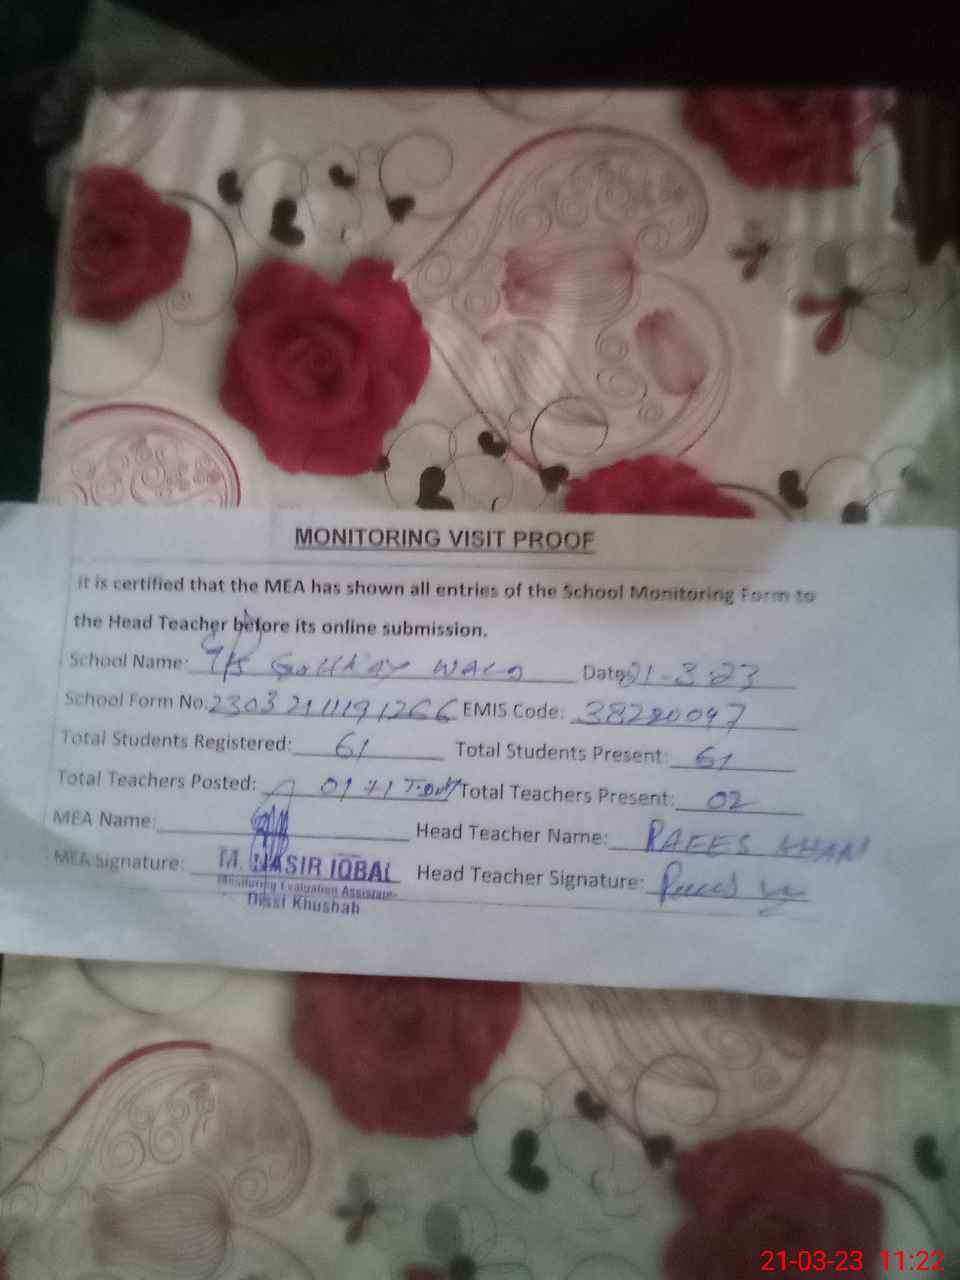 MONITORING VISIT PROOF
It is certified that the MEA has shown all entries of the School Monitoring Form to
the Head Teacher before its online submission.
School Name: Date: 21-3-23
School Form No: EMIS Code: 38280047
Total Students Registered: 61 Total Students Present: 61
Total Teachers Posted: 01+1 Total Teachers Present: 02
MEA Name: Head Teacher Name: RAEES KHAN
MEA Signature: M. NASIR IQBAL Head Teacher Signature:
Monitoring Evaluation Assistant
Distt Khushab
21-03-23 11:22